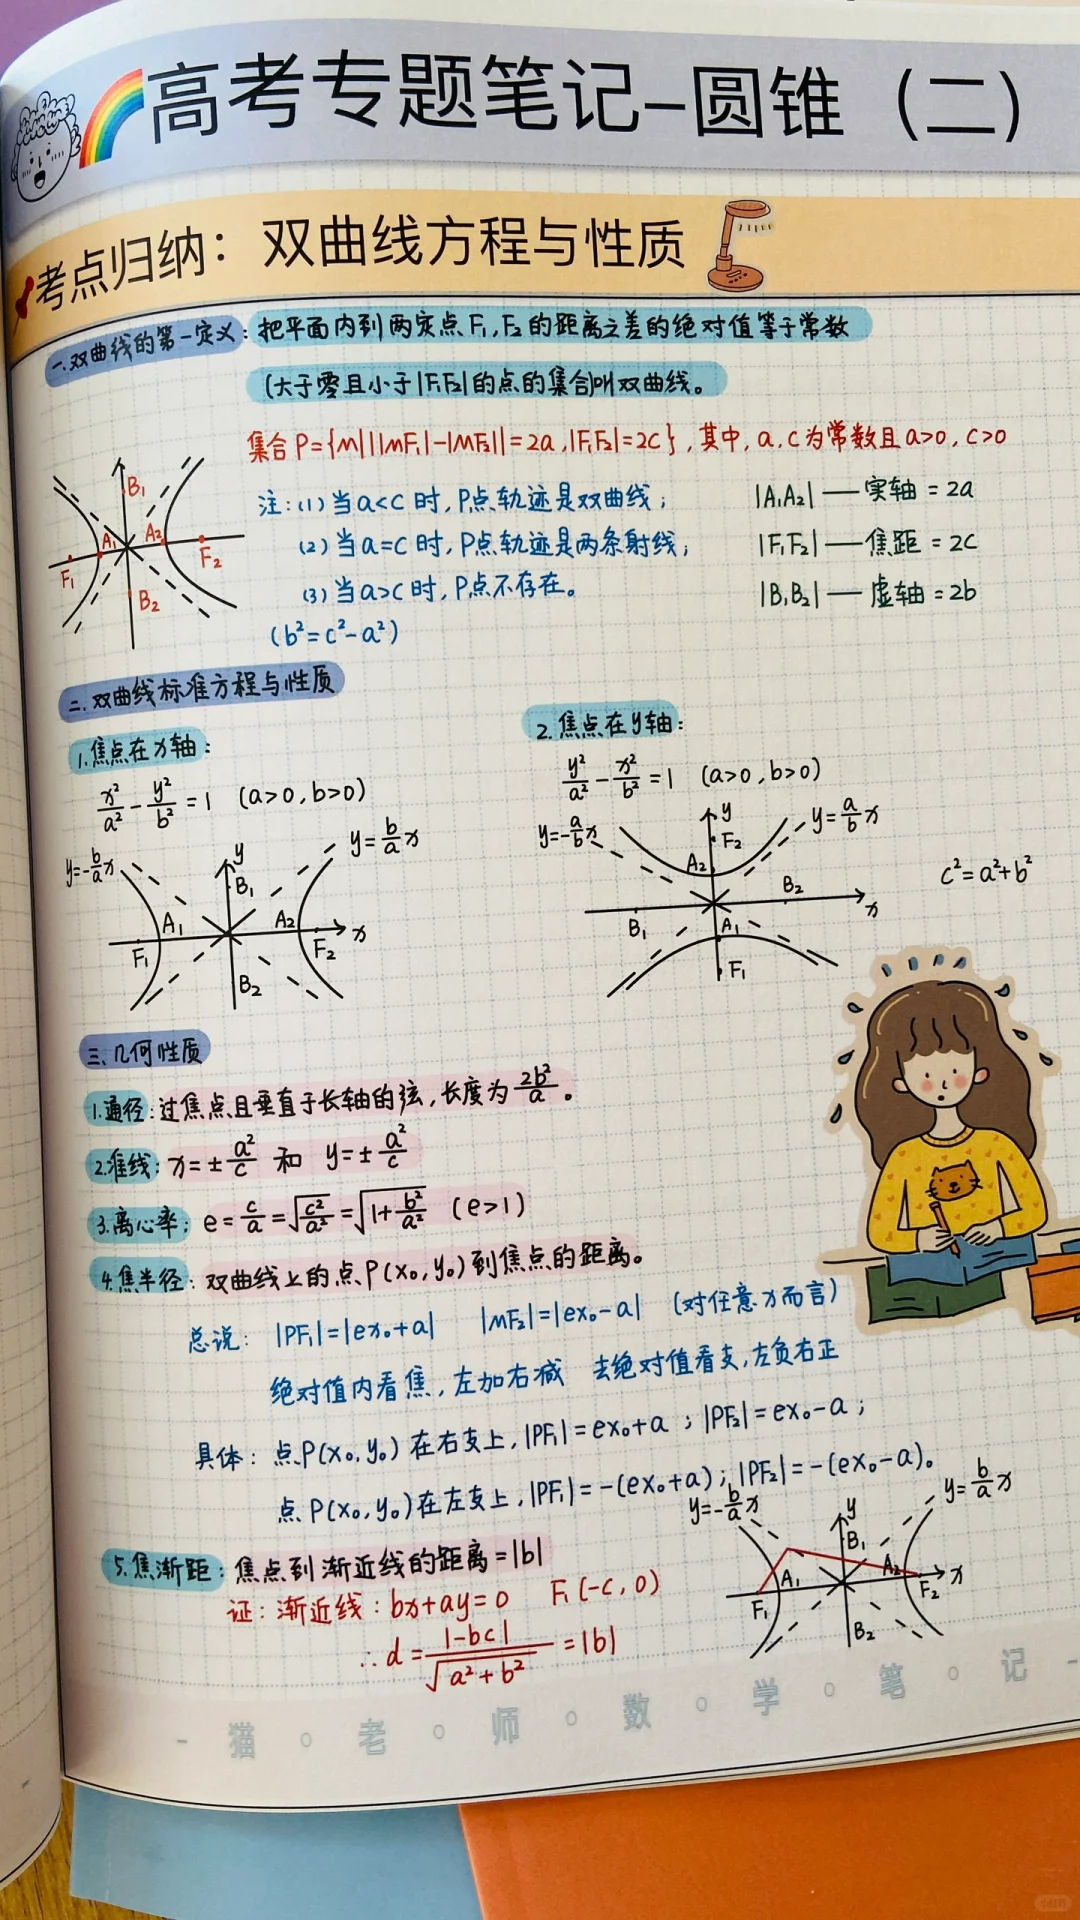 高考专题笔记-圆锥（二）
考点归纳：双曲线方程与性质
一.双曲线的第一定义：把平面内到两定点F₁,F₂的距离之差的绝对值等于常数
(大于零且小于|F₁F₂|的点的集合)叫双曲线。
集合P={M||MF₁|-|MF₂||=2a,|F₁F₂|=2c},其中,a,c为常数且a>0,c>0
注:(1)当a<c时,P点轨迹是双曲线;
(2)当a=c时,P点轨迹是两条射线;
(3)当a>c时,P点不存在。
(b²=c²-a²)
|A₁A₂|—实轴=2a
|F₁F₂|—焦距=2c
|B₁B₂|—虚轴=2b
B₁
A₁ A₂
F₁ F₂
B₂
二.双曲线标准方程与性质
1.焦点在x轴:
x²/a²-y²/b²=1 (a>0,b>0)
y=-b/a x y y=b/a x
B₁
A₁ A₂ x
F₁ F₂
B₂
2.焦点在y轴:
y²/a²-x²/b²=1 (a>0,b>0)
y=-a/b x y y=a/b x
F₂
A₂
B₂
x
B₁ A₁
F₁
c²=a²+b²
三、几何性质
1.通径:过焦点且垂直于长轴的弦,长度为2b²/a。
2.准线:x=±a²/c 和 y=±a²/c
3.离心率:e=c/a=√(c²/a²)=√(1+b²/a²) (e>1)
4.焦半径:双曲线上的点P(x₀,y₀)到焦点的距离。
总说: |PF₁|=|ex₀+a| |MF₂|=|ex₀-a| (对任意x而言)
绝对值内看焦,左加右减 去绝对值看支,左负右正
具体:点P(x₀,y₀)在右支上,|PF₁|=ex₀+a;|PF₂|=ex₀-a;
点P(x₀,y₀)在左支上,|PF₁|=-(ex₀+a);|PF₂|=-(ex₀-a)。
5.焦渐距:焦点到渐近线的距离=|b|
证:渐近线:bx+ay=0 F₁(-c,0)
∴d=|-bc|/√(a²+b²)=|b|
y=-b/a x y y=b/a x
B₁
A₁ A₂ x
F₁ F₂
B₂
-猫。老。师。数。学。笔。记-